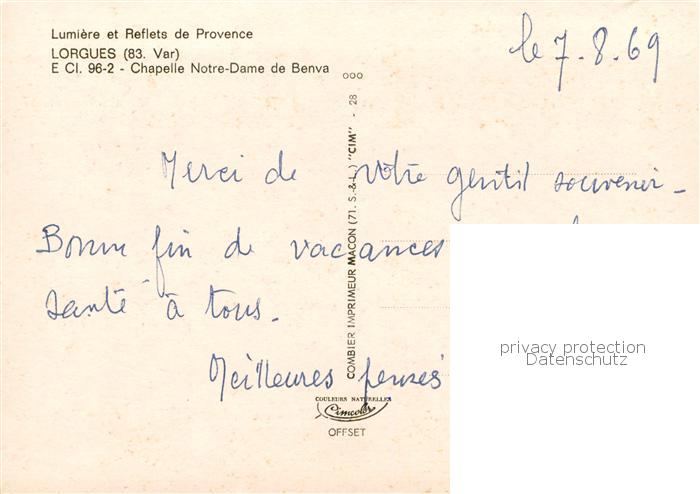 Lumière et Reflets de Provence
LORGUES (83. Var)
E Cl. 96-2 - Chapelle Notre-Dame de Benva
le 7.8.69
Merci de votre gentil souvenir-
Bonne fin de vacances
santé à tous.
Meilleures pensés
COMBIER IMPRIMEUR MACON (71. S.-&-L.) "CIM" - 28 ooo
COULEURS NATURELLES
Cimcolor
OFFSET
privacy protection
Datenschutz